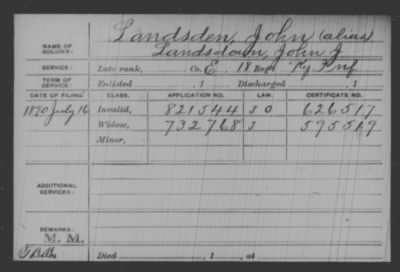 NAME OF SOLDIER: Landsden, John (alias)
Landsdown, John J
SERVICE: Late rank, Co. E, 18 Reg't Ky Inf
TERM OF SERVICE: Enlisted , 1 Discharged , 1
DATE OF FILING. CLASS. APPLICATION NO. LAW. CERTIFICATE NO.
1890 July 16 Invalid, 821544 J O 626517
Widow, 732768 J 595519
Minor,
ADDITIONAL SERVICES:
REMARKS:
M. M.
Died , 1 , at